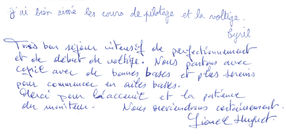 j'ai bien aimé les cours de pilotage et la voltige.
Cyril
Très bon séjour intensif de perfectionnement
et de début de voltige. Nous partons avec
Cyril avec de bonnes bases et plus sereins
pour commencer en autres bases.
Merci pour l'accueil et la patience
du moniteur. Nous reviendrons certainement.
Lionel Huguet